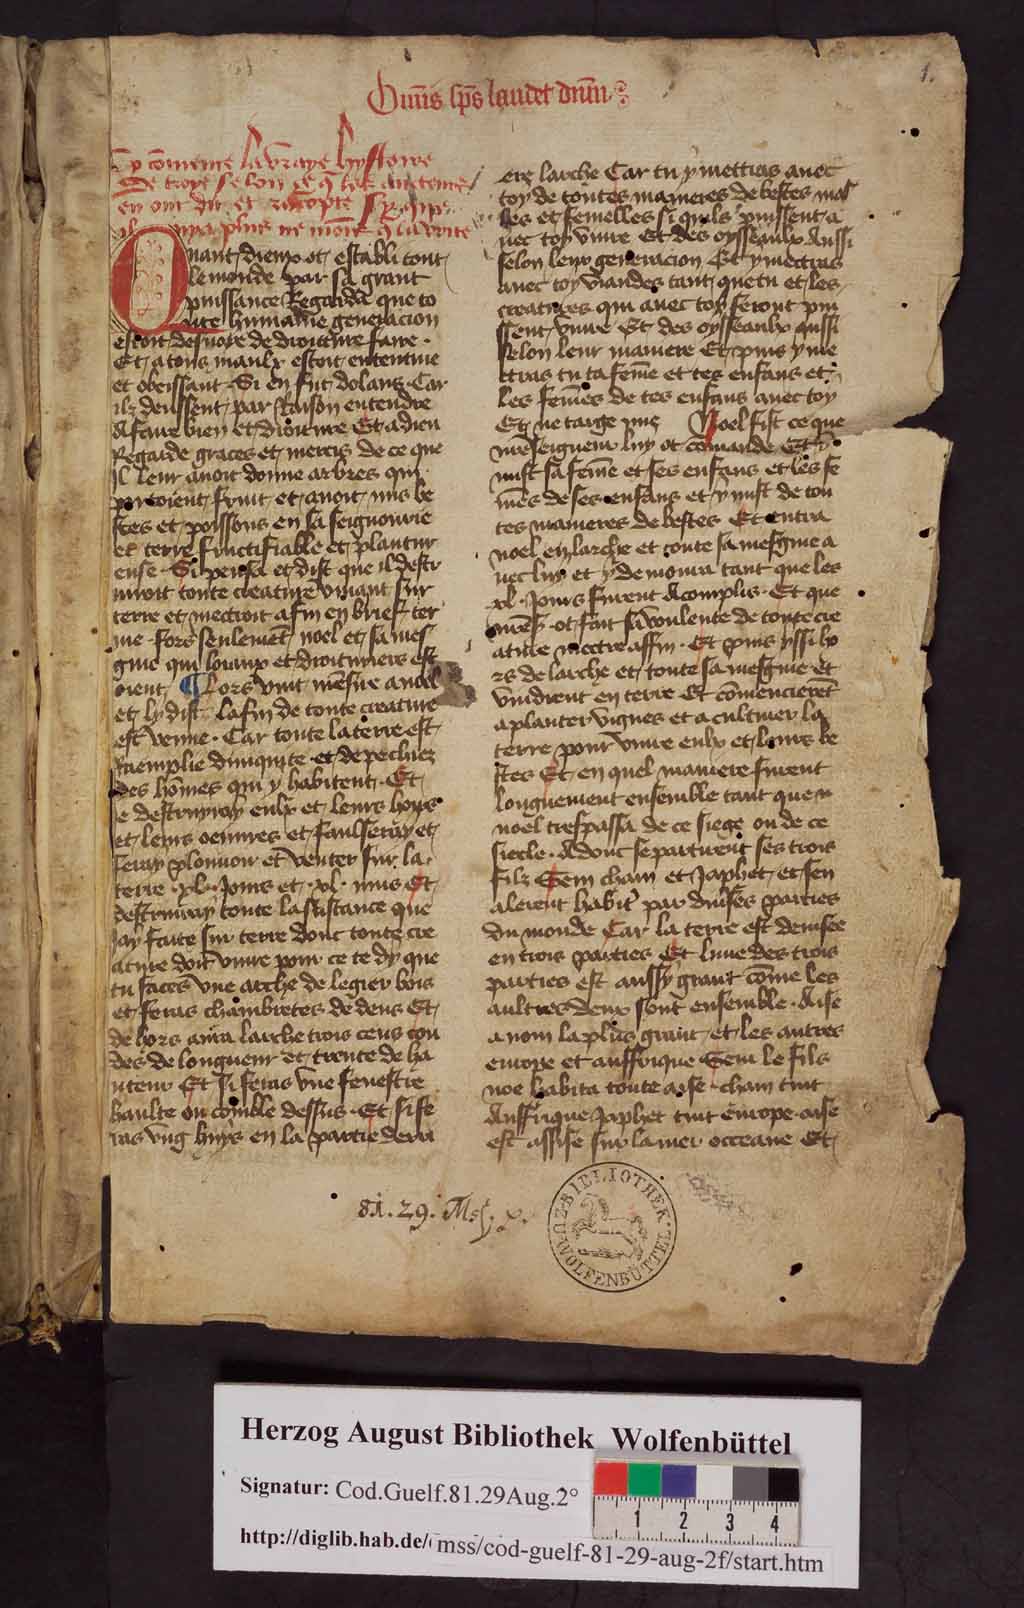 1.
Omīs sp̄s laudet dnm̄
Cy cōmence la vraye hystoire
De troye selon ce q̄ les anciens
en ont dit et racompte
Quant dieux ot establi tout
le monde par sa grant
puissance Regarda que to
ute humaine generacion
estoit desuoye de droicture faire ·
Et a tous maulx estoit ententiue
et obeissant · Si en fut dolant · Car
ilz deussent par Raison entendre
A faire bien et droicture Et a dieu
Regarde graces et mercis de ce que
Il leur auoit donne arbres qui
portoient fruit et auoit mis be
stes et poissons en sa seignourie
et terre fructifiable et plantur
euse · Si pensa et dist que il destr
uiroit toute creature viuant sur
terre et mectroit a fin en brief ter
me · fors seulement noel et sa mes
gnie qui loiaux et droituriers est
oient ¶ Lors vint
et ly dist la fin de toute creature
est venue · Car toute la terre est
Raemplie diniquite et de pechiez
des hōmes qui y habitent · Et
Je destruyray eulx et leurs hoirs
et leurs oeuures et
feray plouuoir et venter sur la
terre · xl · Jours et · xl · nuis Et
destruiray toute la sustance que
Jay faite sur terre dont toute cre
ature doit viure pour ce te dy que
tu faces vne arche de legier bois
et feras chambretes dedens Et
dehors aura larche trois cens cou
des de longueur et trente de ha
uteur Et si feras vne fenestre
haulte ou comble dessus · Et si fe
ras vng huys en la partie derri
ere larche Car tu y mettras auec
toy de toutes manieres de bestes mas
les et femelles si quils puissent a
uec toy viure Et des oysseaulx Aussi
selon leur generacion Et y mectras
auec toy viandes tant que tu et les
creatures qui auec toy seront pui
ssent viure Et des oysseaulx aussi
selon leur maniere Et puis y me
ttras tu ta feme et tes enfans et
les femes de tes enfans auec toy
Et ne targe mie Noel fist ce que
nrēseigneur luy ot comande Et y
mist sa feme et ses enfans et les fe
mes de ses enfans et y mist de tou
tes manieres de bestes Et entra
noel en larche et toute sa mesgnie a
uec luy et y demoura tant que les
xl · Jours furent Acomplis · Et que
ot fait sa voulente de toute cre
ature mectre affin · Et puis yssi ho
rs de larche et toute sa mesgnie Et
vindrent en terre Et cōmencierēt
a planter vignes et a cultiuer la
terre pour viure eulx et leurs be
stes Et en quel maniere furent
longuement ensemble tant que
noel trespassa de ce siege ou de ce
siecle · Adonc se partirent ses trois
filz Sem cham et Japhet et sen
alerent habit' par diuses parties
du monde Car la terre est deuisee
en trois parties Et lune des trois
parties est aussy grant cōme les
aultres deux sont ensemble · Aise
a nom la plus grant et les autres
europe et auffrique Sem le fils
noe habita toute aise · cham tint
Auffrique Japhet tint europe · aise
est assise sur la mer occeane Et
81.29. Msc. x.
BIBLIOTHEK · ZU WOLFENBÜTTEL
Herzog August Bibliothek Wolfenbüttel
Signatur: Cod.Guelf.81.29Aug.2°
http://diglib.hab.de/ mss/cod-guelf-81-29-aug-2f/start.htm
1 2 3 4